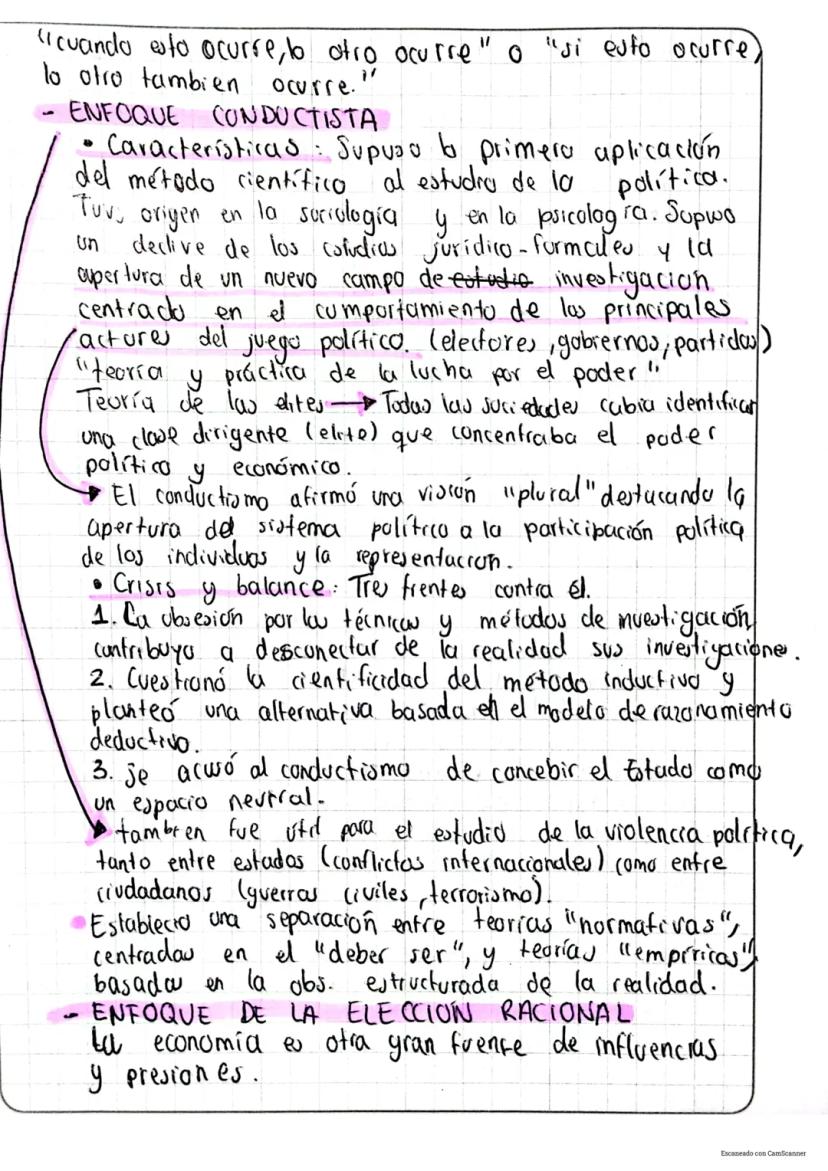 "cuando esto ocurre, lo otro ocurre" o "si esto ocurre,
lo otro tambien ocurre."
- ENFOQUE CONDUCTISTA
• Características: Supuso la primera aplicación
del método científico al estudio de la política.
Tuvo origen en la sociología y en la psicología. Supuso
un declive de los estudios jurídico-formales y la
apertura de un nuevo campo de estudio investigación
centrado en el comportamiento de los principales
actores del juego político. (electores, gobiernos, partidos)
"teoría y práctica de la lucha por el poder"
Teoría de las elites → Todas las sociedades cabia identificar
una clase dirigente (elite) que concentraba el poder
político y económico.
El conductismo afirmó una visión "plural" destacando la
apertura del sistema político a la participación política
de los individuos y la representacion.
• Crisis y balance: Tres frentes contra él.
1. La obsesión por las técnicas y métodos de investigación
contribuyo a desconectar de la realidad sus investigaciones.
2. Cuestionó la cientificidad del método inductivo y
planteó una alternativa basada en el modelo de razonamiento
deductivo.
3. se acusó al conductismo de concebir el Estado como
un espacio neutral.
tambien fue útil para el estudio de la violencia política,
tanto entre estados (conflictos internacionales) como entre
ciudadanos (guerras civiles, terrorismo).
• Establecio una separación entre teorías "normativas",
centradas en el "deber ser", y teorías "empíricas",
basadas en la obs. estructurada de la realidad.
- ENFOQUE DE LA ELECCION RACIONAL
La economía es otra gran fuente de influencias
y presiones.
Escaneado con CamScanner